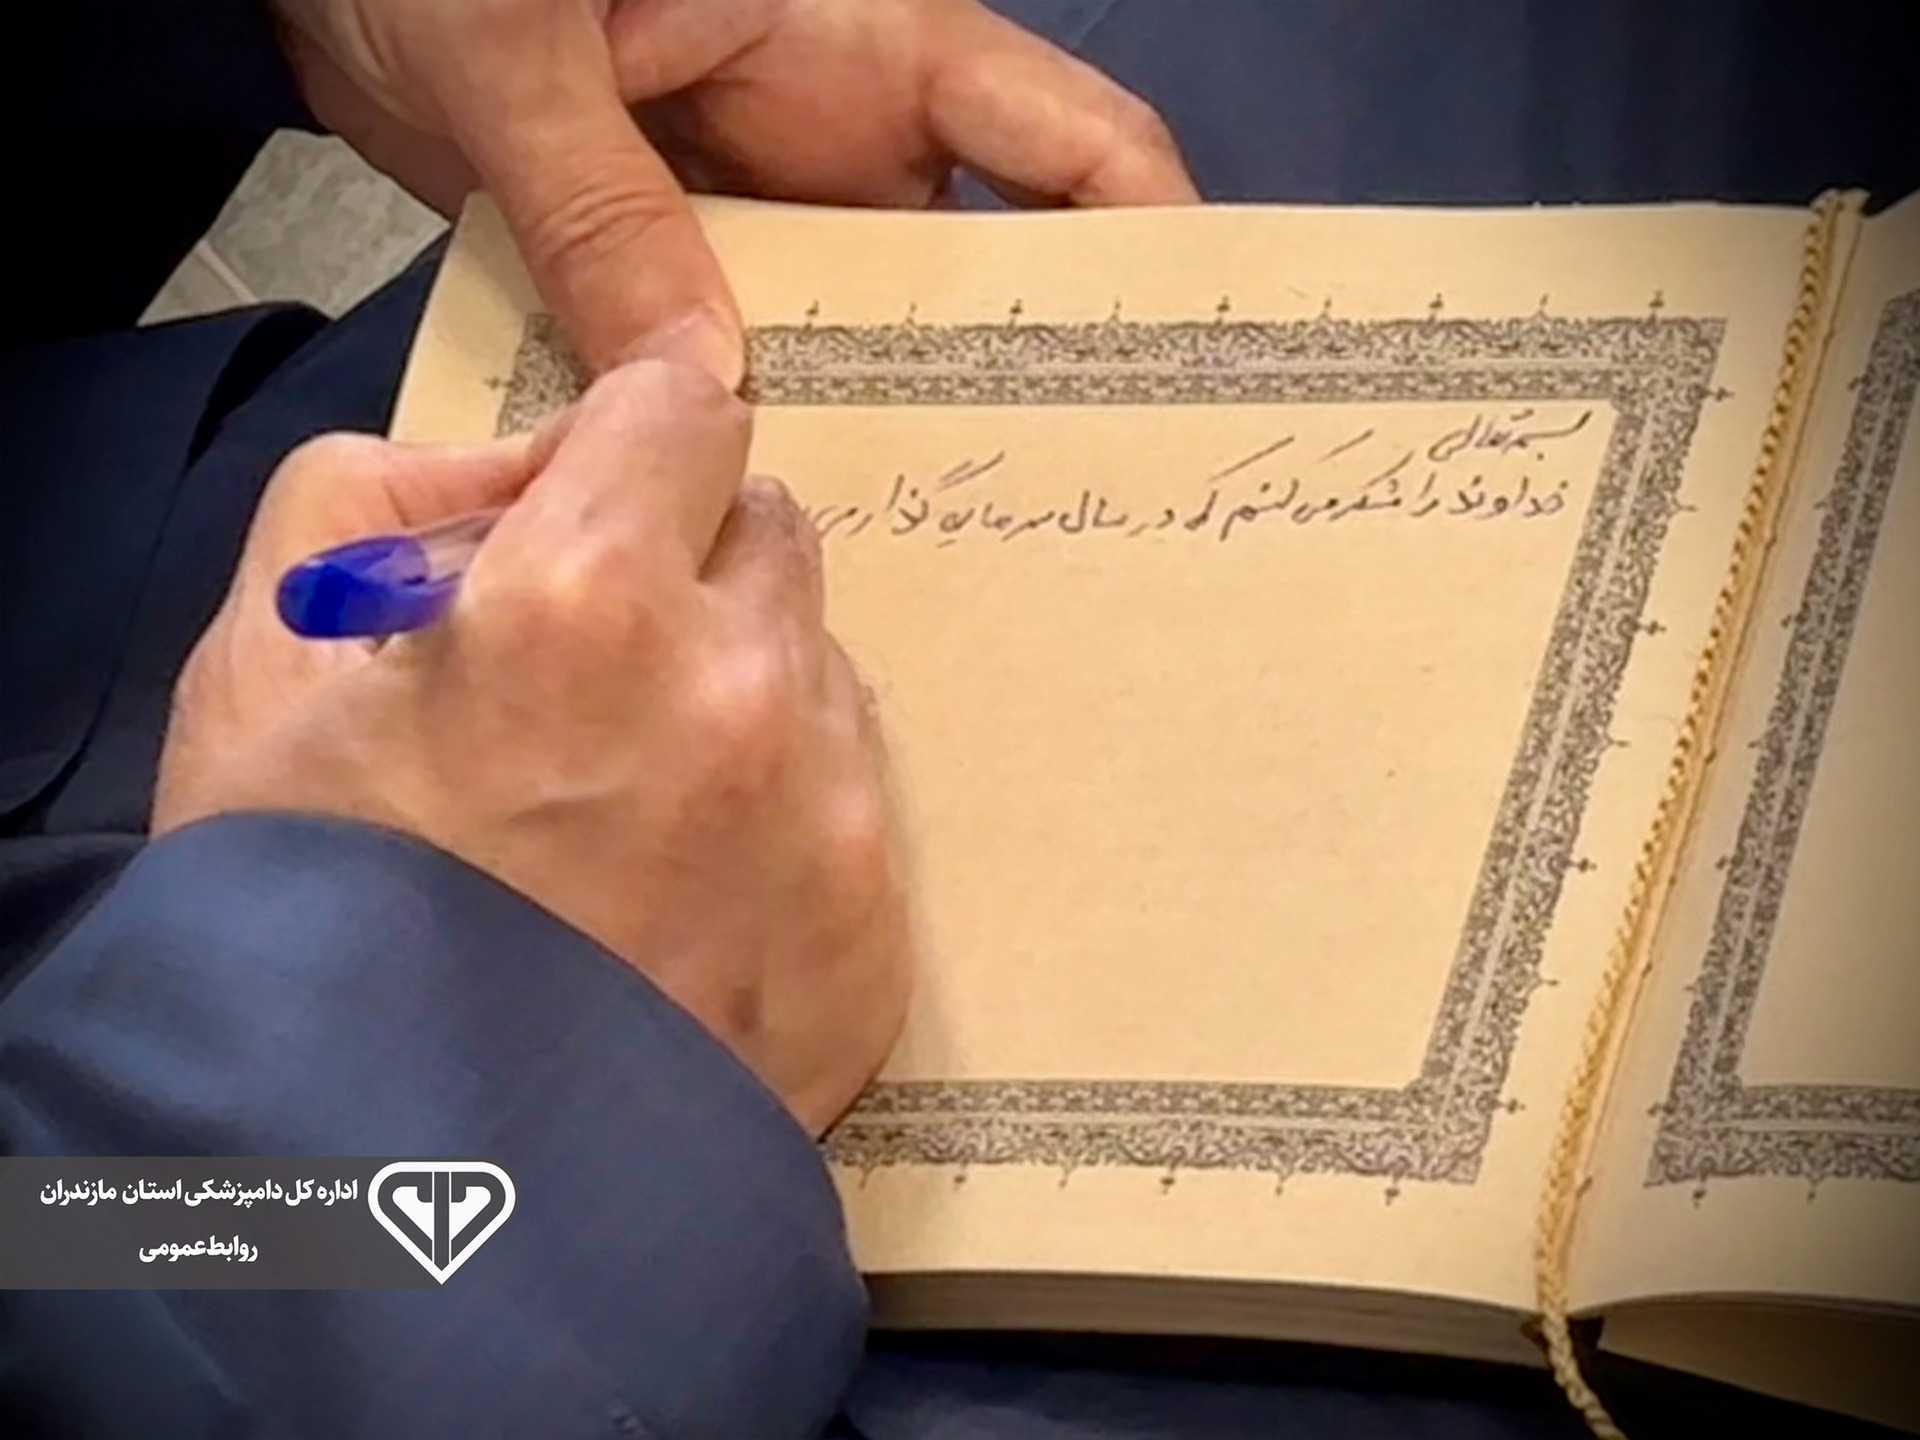 بسمه تعالی
خداوند را شکر می کنیم که در سال سرمایه گذاری
اداره کل دامپزشکی استان مازندران
روابط عمومی